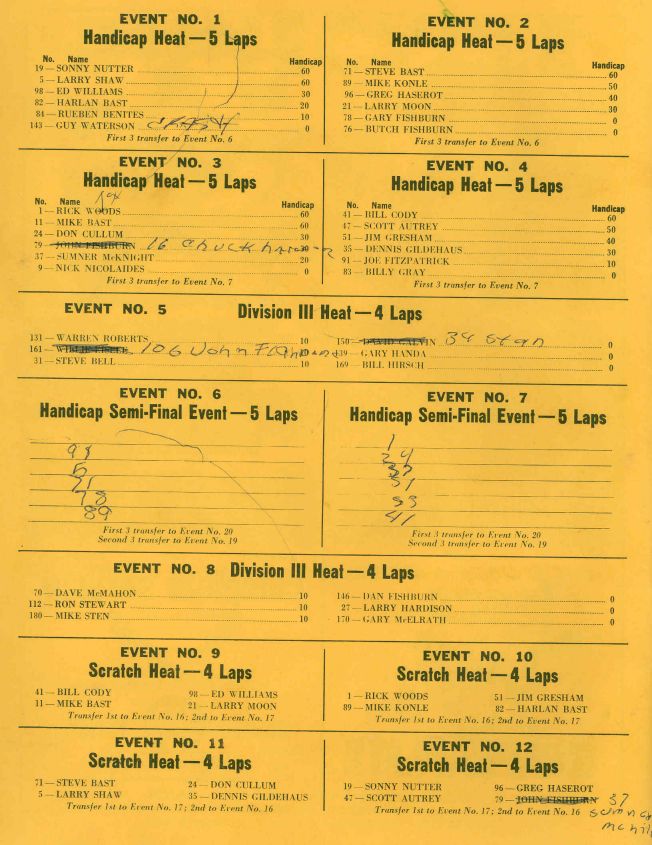 EVENT NO. 1
Handicap Heat — 5 Laps
No. Name Handicap
19 — SONNY NUTTER 60
5 — LARRY SHAW 60
98 — ED WILLIAMS 30
82 — HARLAN BAST 20
84 — RUEBEN BENITES 10
143 — GUY WATERSON 0
First 3 transfer to Event No. 6
EVENT NO. 2
Handicap Heat — 5 Laps
No. Name Handicap
71 — STEVE BAST 60
89 — MIKE KONLE 50
96 — GREG HASEROT 40
21 — LARRY MOON 30
78 — GARY FISHBURN 0
76 — BUTCH FISHBURN 0
First 3 transfer to Event No. 6
EVENT NO. 3
Handicap Heat — 5 Laps
No. Name Handicap
1 — RICK WOODS 60
11 — MIKE BAST 60
24 — DON CULLUM 30
79 — JOHN FISHBURN 16 Chuck
37 — SUMNER McKNIGHT 20
9 — NICK NICOLAIDES 0
First 3 transfer to Event No. 7
EVENT NO. 4
Handicap Heat — 5 Laps
No. Name Handicap
41 — BILL CODY 60
47 — SCOTT AUTREY 50
51 — JIM GRESHAM 40
35 — DENNIS GILDEHAUS 30
91 — JOE FITZPATRICK 10
83 — BILLY GRAY 0
First 3 transfer to Event No. 7
EVENT NO. 5 Division III Heat — 4 Laps
131 — WARREN ROBERTS 10
161 — 106 John
31 — STEVE BELL 10
150 — DAVID GALVIN 34 Stan 0
39 — GARY HANDA 0
169 — BILL HIRSCH 0
EVENT NO. 6
Handicap Semi-Final Event — 5 Laps
5
21
78
89
First 3 transfer to Event No. 20
Second 3 transfer to Event No. 19
EVENT NO. 7
Handicap Semi-Final Event — 5 Laps
1
24
37
51
83
41
First 3 transfer to Event No. 20
Second 3 transfer to Event No. 19
EVENT NO. 8 Division III Heat — 4 Laps
70 — DAVE McMAHON 10
112 — RON STEWART 10
180 — MIKE STEN 10
146 — DAN FISHBURN 0
27 — LARRY HARDISON 0
170 — GARY McELRATH 0
EVENT NO. 9
Scratch Heat — 4 Laps
41 — BILL CODY 98 — ED WILLIAMS
11 — MIKE BAST 21 — LARRY MOON
Transfer 1st to Event No. 16; 2nd to Event No. 17
EVENT NO. 10
Scratch Heat — 4 Laps
1 — RICK WOODS 51 — JIM GRESHAM
89 — MIKE KONLE 82 — HARLAN BAST
Transfer 1st to Event No. 16; 2nd to Event No. 17
EVENT NO. 11
Scratch Heat — 4 Laps
71 — STEVE BAST 24 — DON CULLUM
5 — LARRY SHAW 35 — DENNIS GILDEHAUS
Transfer 1st to Event No. 17; 2nd to Event No. 16
EVENT NO. 12
Scratch Heat — 4 Laps
19 — SONNY NUTTER 96 — GREG HASEROT
47 — SCOTT AUTREY 79 — JOHN FISHBURN 37
Transfer 1st to Event No. 17; 2nd to Event No. 16